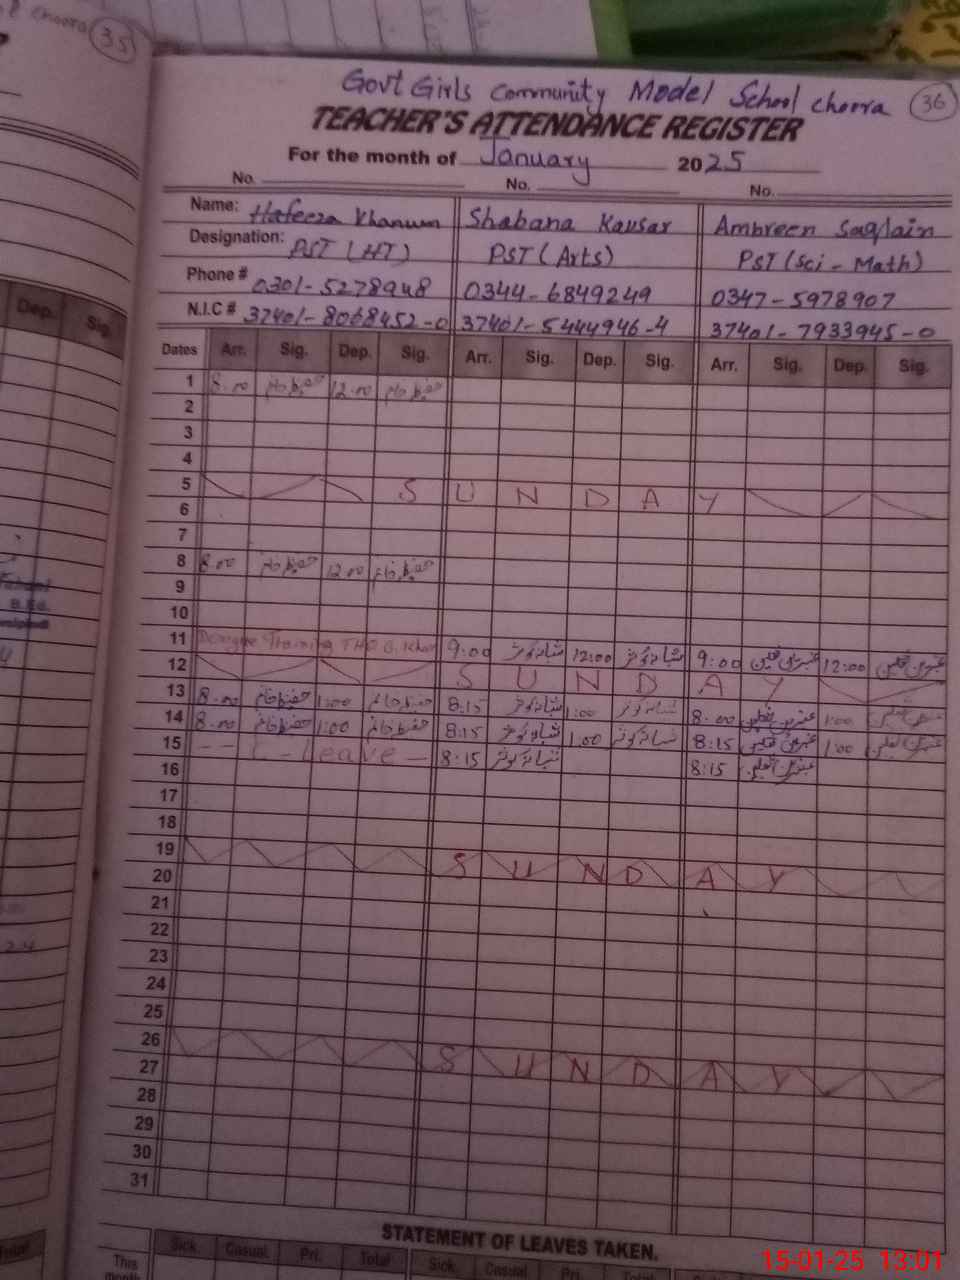 35
Govt Girls Community Model School Choora 36
TEACHER'S ATTENDANCE REGISTER
For the month of January 2025
No. No. No.
Name: Hafeeza Khanum Shabana Kausar Ambreen Saqlain
Designation: PST (HT) PST (Arts) PST (Sci - Math)
Phone # 0301-5278948 0344-6849249 0347-5978907
N.I.C # 37401-8068452-0 37401-5444946-4 37401-7933945-0
Dates Arr. Sig. Dep. Sig. Arr. Sig. Dep. Sig. Arr. Sig. Dep. Sig.
1 8.00 12.00
2
3
4
5 S U N D A Y
6
7
8 8.00 12.00
9
10
11 Training 9:00 شبانہ کوثر 12:00 شبانہ کوثر 9:00 12:00
12 S U N D A Y
13 8.00 1:00 8:15 شبانہ کوثر 1:00 شبانہ کوثر 8.00 1:00
14 8.00 1:00 8:15 شبانہ کوثر 1:00 شبانہ کوثر 8:15 1:00
15 C. Leave 8:15 شبانہ کوثر 8:15
16
17
18
19 S U N D A Y
20
21
22
23
24
25
26 S U N D A Y
27
28
29
30
31
STATEMENT OF LEAVES TAKEN.
This month Sick. Casual. Pri. Total Sick. Casual. Pri. Total Sick. Casual.
Dep. Sig.
15-01-25 13:01